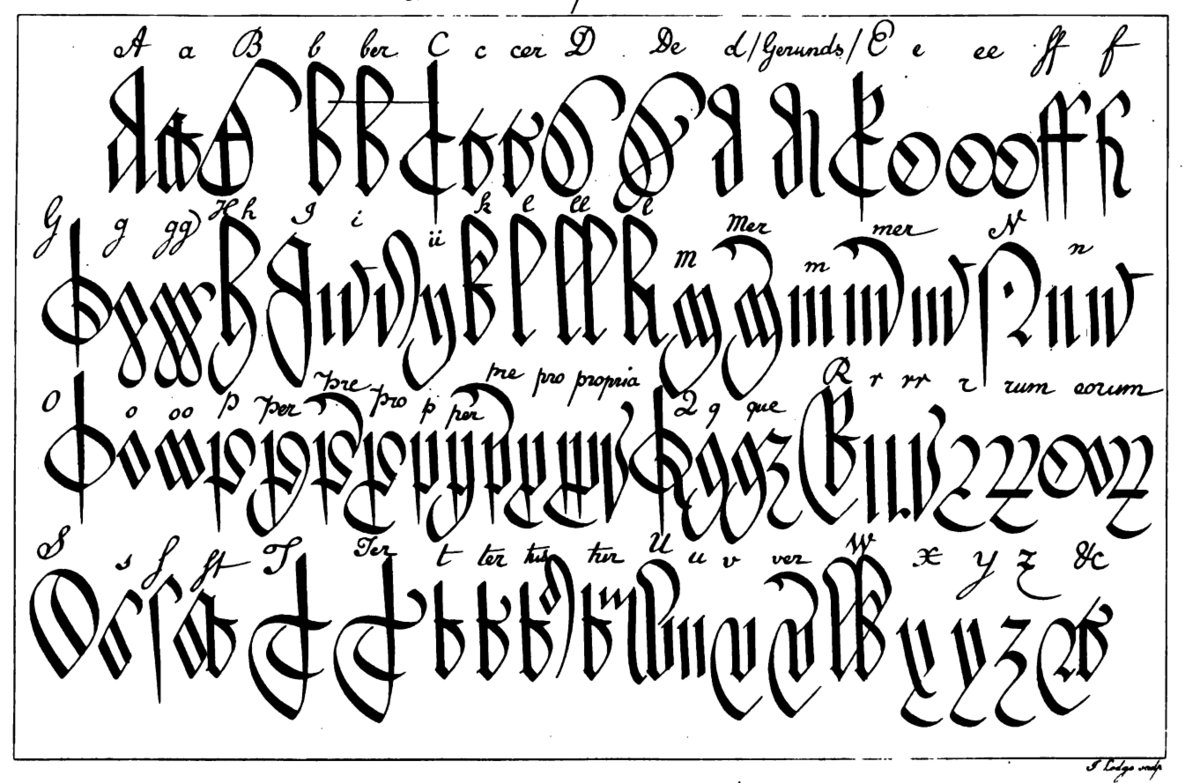 A a B b ber C c cer D De d/Gerunds/ E e ee ff f
G g gg H h I i ii k l ll l m Mer m mer N n
O o oo p per pre pro p per pre pro propria Q q que R r rr r rum eorum
S s ſ ſt T Ter t ter tus tur U u v ver W x y z &c